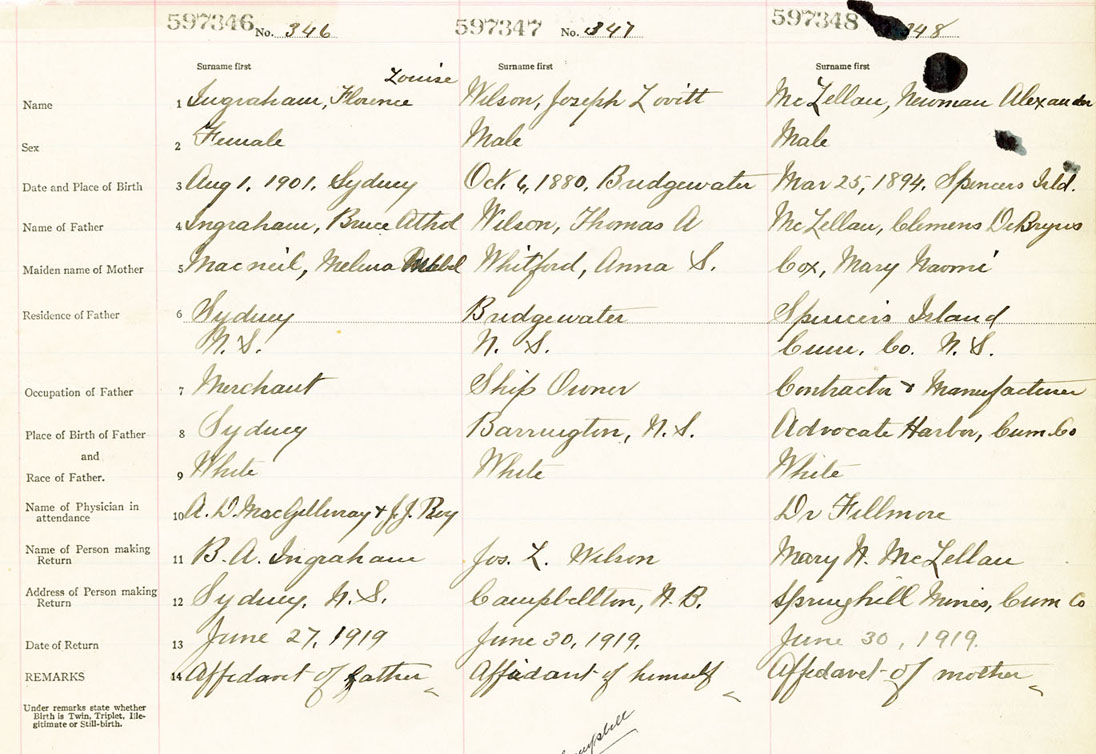 597346 No. 346 597347 No. 347 597348 348
Surname first Surname first Surname first
Louise
Name 1 Ingraham, Florence Wilson, Joseph Lovitt McLellan, Newman Alexander
Sex 2 Female Male Male
Date and Place of Birth 3 Aug 1, 1901, Sydney Oct. 6, 1880, Bridgewater Mar 25, 1894, Spencers Isld.
Name of Father 4 Ingraham, Bruce Athol Wilson, Thomas A McLellan, Clemens
Maiden name of Mother 5 Macneil, Melina Whitford, Anna S. Cox, Mary Naomi
Residence of Father 6 Sydney Bridgewater Spencer's Island
N.S. N. S. Cum. Co. N.S.
Occupation of Father 7 Merchant Ship Owner Contractor & Manufacturer
Place of Birth of Father 8 Sydney Barrington, N.S. Advocate Harbor, Cum. Co
and
Race of Father. 9 White White White
Name of Physician in
attendance 10 A. D. MacGillivray & J.J. Roy Dr Fillmore
Name of Person making
Return 11 B. A. Ingraham Jos. L. Wilson Mary N. McLellan
Address of Person making
Return 12 Sydney, N.S. Campbellton, N.B. Springhill Mines, Cum Co
Date of Return 13 June 27, 1919 June 30, 1919. June 30, 1919.
REMARKS 14 Affidavet of father Affidavit of himself Affidavet of mother
Under remarks state whether
Birth is Twin, Triplet, Ille-
gitimate or Still-birth.